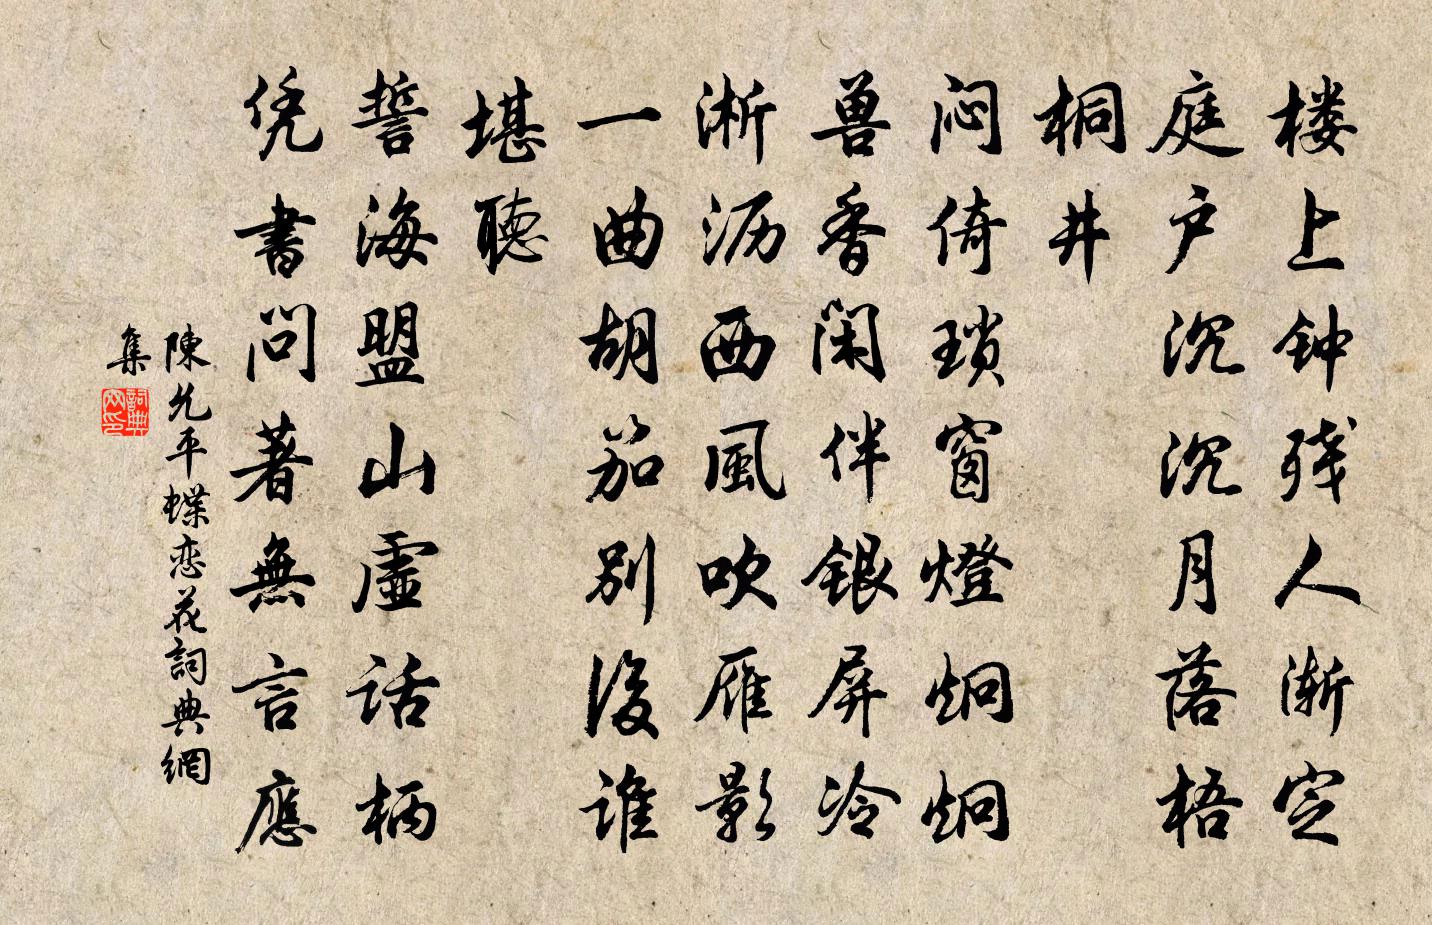 楼上钟残人渐定
庭户沉沉月落梧
桐井
闷倚琐窗燈炯炯
兽香闲伴银屏冷
淅沥西風吹雁影
一曲胡笳别後谁
堪聽
誓海盟山虚话柄
凭書问著無言應
陳允平蝶恋花詞典網
集
詞典
网印